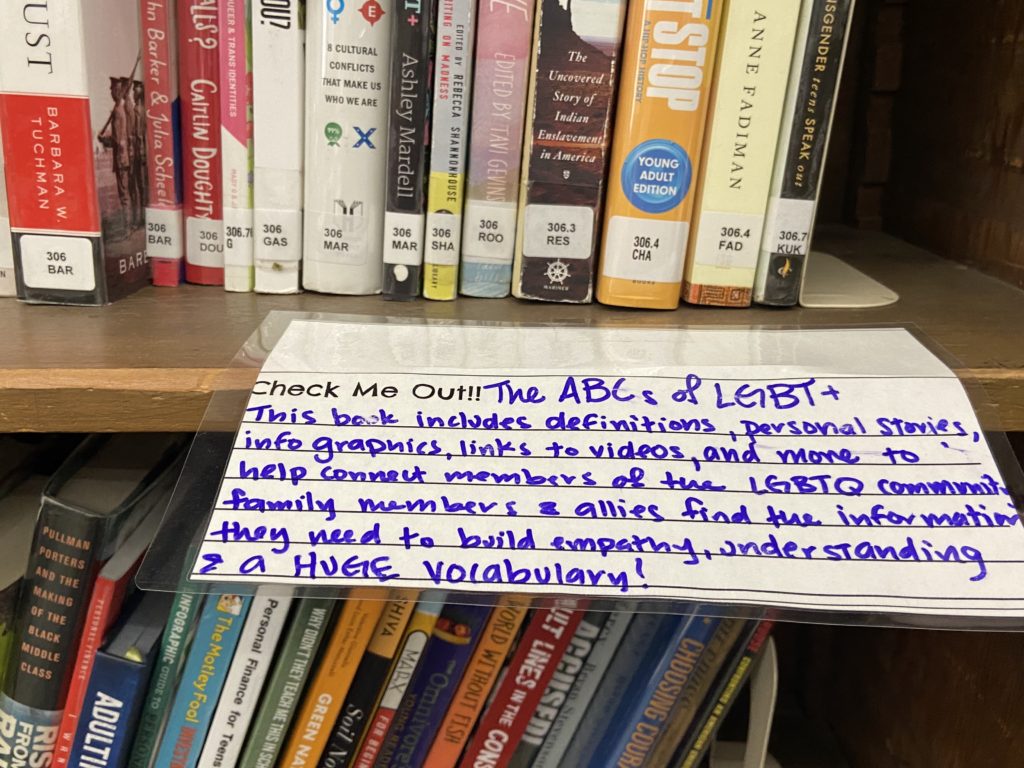 UST
BARBARA W. TUCHMAN
306
BAR
BARB
hn Barker & Julia Scheel
306
BAR
ALLS?
CAITLIN DOUGHTY
306
DOU
QUEER & TRANS IDENTITIES
306.7
G
YOU?
306
GAS
8 CULTURAL
CONFLICTS
THAT MAKE US
WHO WE ARE
99%
X
306
MAR
T+
Ashley Mardell
306
MAR
WRITING ON MADNESS
EDITED BY REBECCA SHANNONHOUSE
306
SHA
EDITED BY TAVI GEVINSON
306
ROO
The
Uncovered
Story of
Indian
Enslavement
in America
306.3
RES
MARINER
T STOP
YOUNG
ADULT
EDITION
306.4
CHA
BOOKS
ANNE FADIMAN
306.4
FAD
NSGENDER teens SPEAK out
306.7
KUK
Check Me Out!! The ABCs of LGBT+
This book includes definitions, personal stories,
info graphics, links to videos, and more to
help connect members of the LGBTQ communit
family members & allies find the information
they need to build empathy, understanding
& a HUGE vocabulary!
PULLMAN
PORTERS
AND THE
MAKING
OF THE
BLACK
MIDDLE
CLASS
RIS
FROM
RA
ADULTI
INFOGRAPHIC GUIDE TO
The Motley Fool
Personal Finance for Teens
WHY DIDN'T THEY TEACH ME THIS IN SCH
GREEN NA
SHIVA
Soil No
MARX
FOR BEGI
Omnivore
WORLD WITHOUT FISH
FAULT LINES IN THE CONS
ACCUSED!
CHOOSING COURA